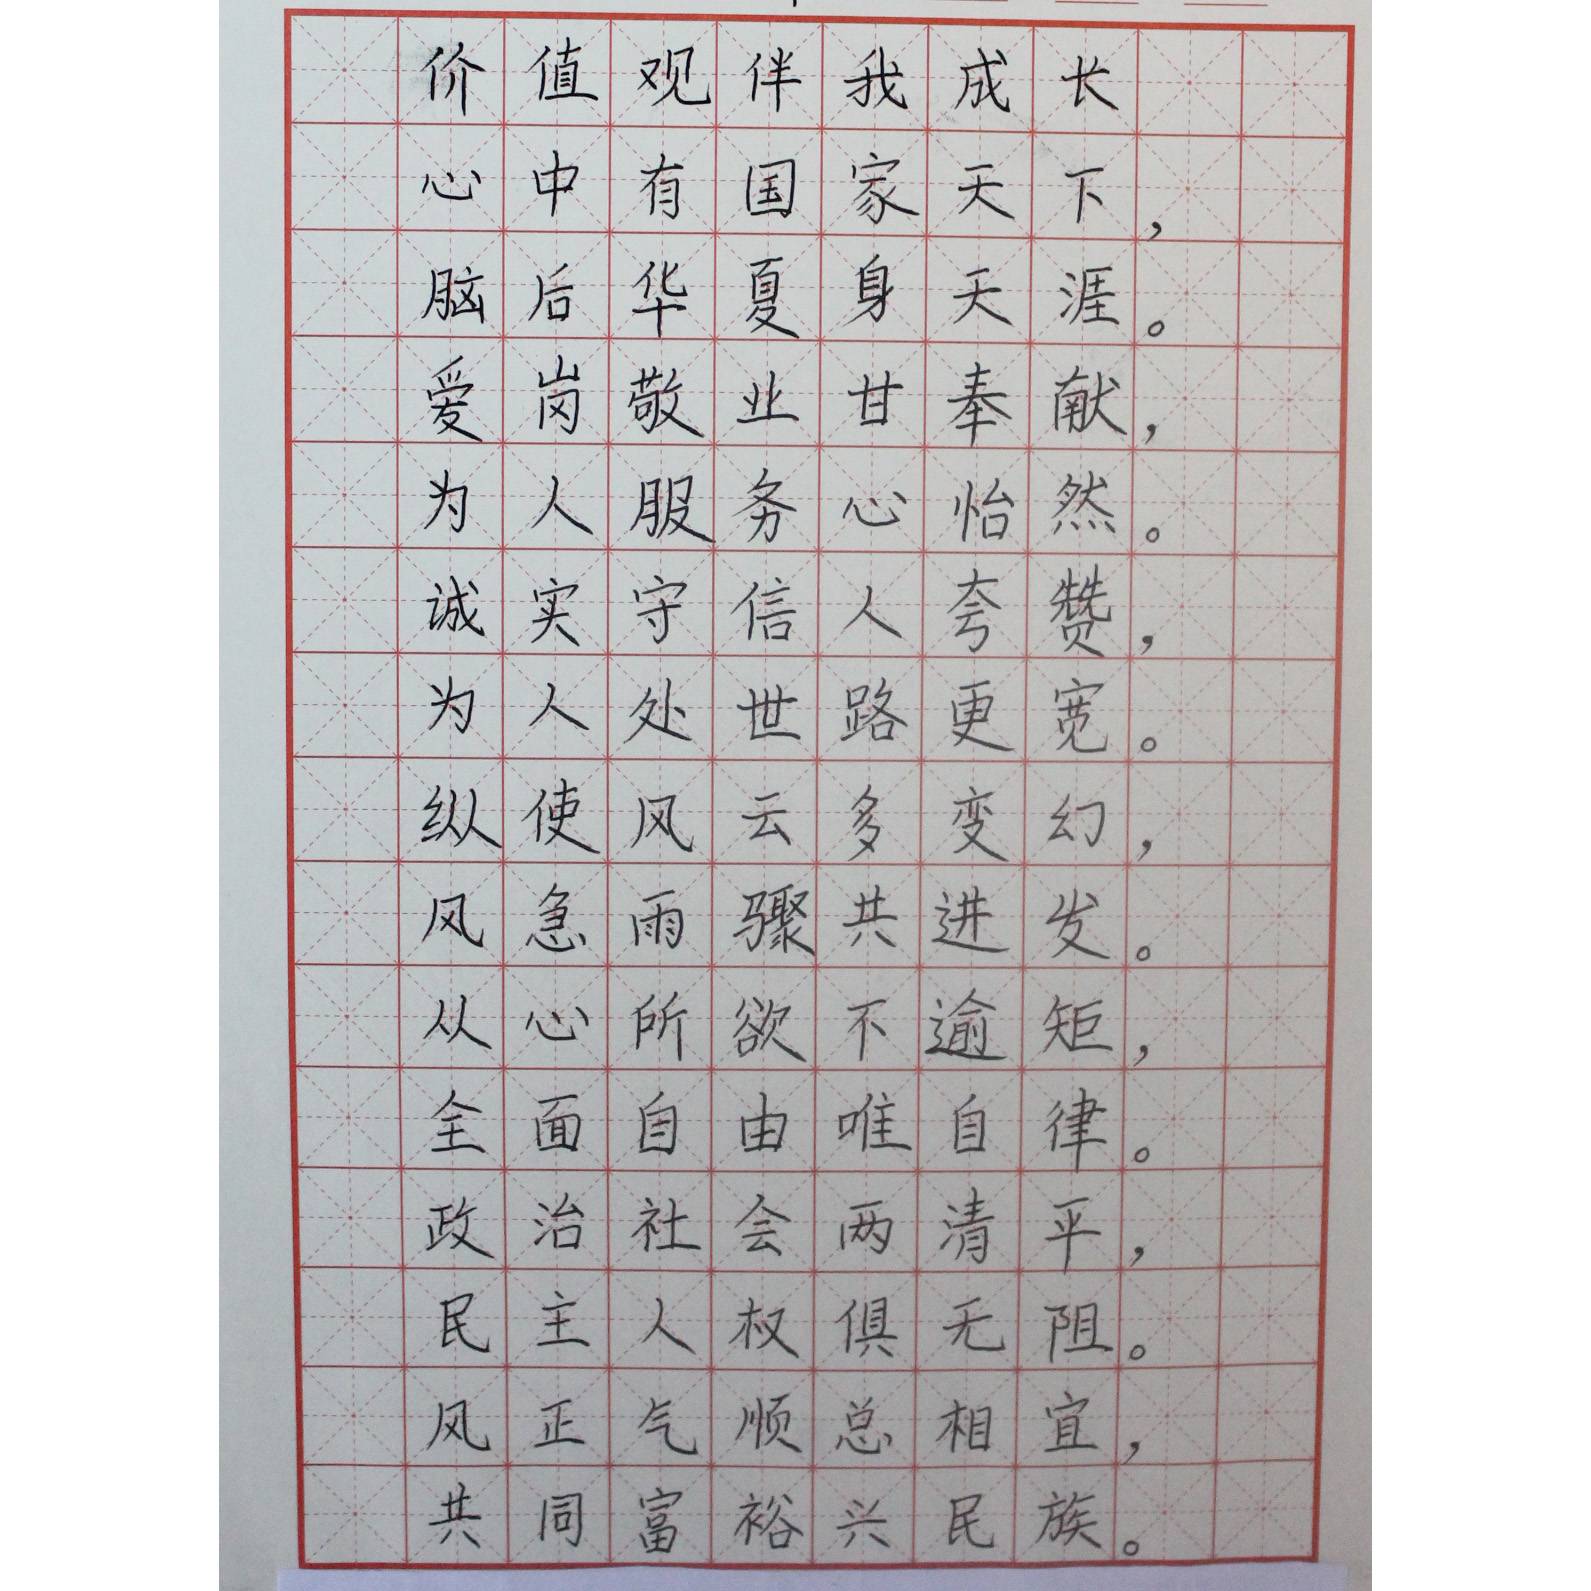 价值观伴我成长
心中有国家天下，
脑后华夏身天涯。
爱岗敬业甘奉献，
为人服务心怡然。
诚实守信人夸赞，
为人处世路更宽。
纵使风云多变幻，
风急雨骤共进发。
从心所欲不逾矩，
全面自由唯自律。
政治社会两清平，
民主人权俱无阻。
风正气顺总相宜，
共同富裕兴民族。